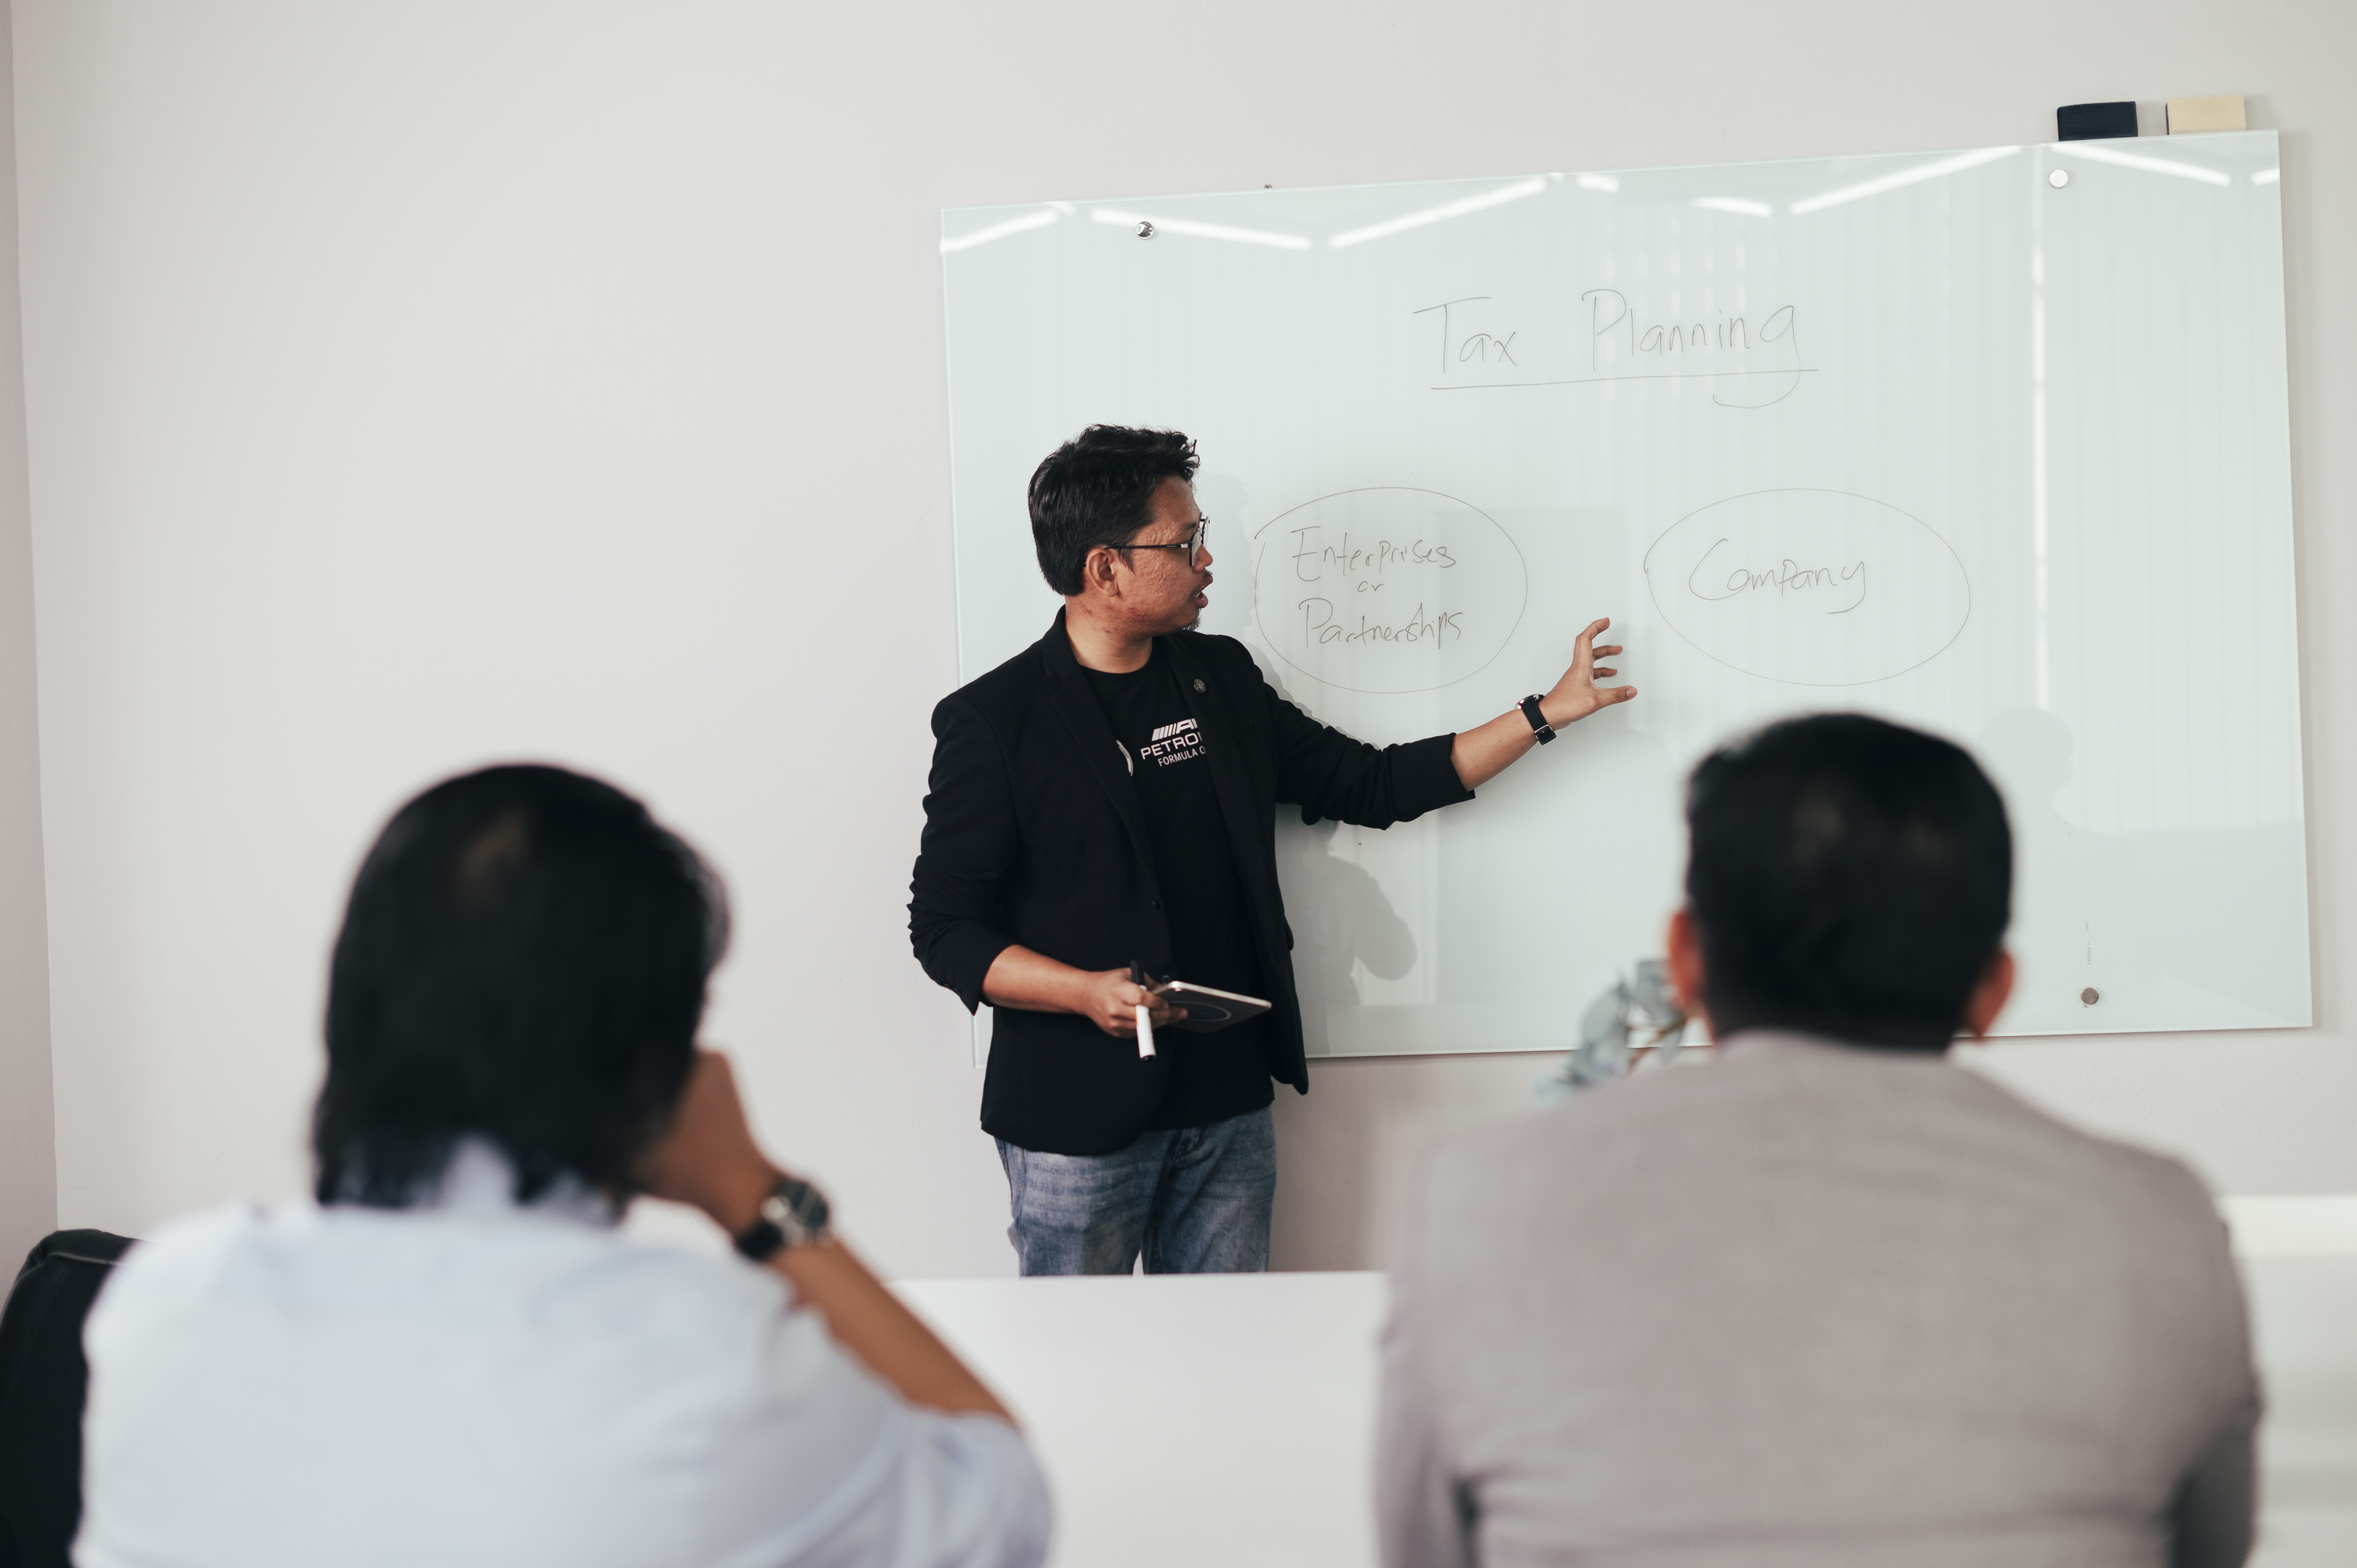 Tax Planning
Enterprises
or
Partnerships
Company
PETRO
FORMULA O